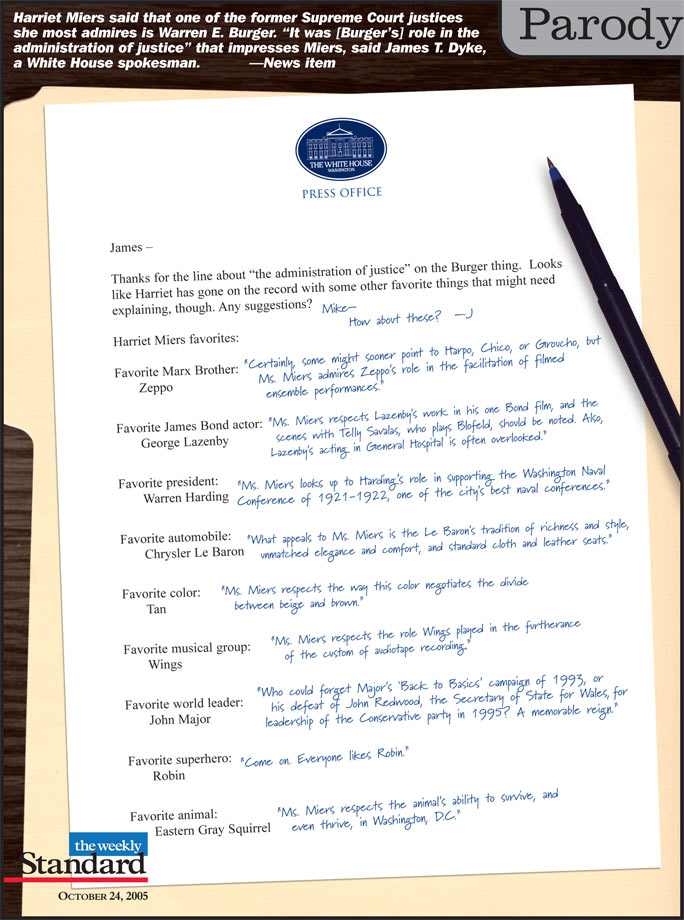 Harriet Miers said that one of the former Supreme Court justices
she most admires is Warren E. Burger. “It was [Burger’s] role in the
administration of justice” that impresses Miers, said James T. Dyke,
a White House spokesman. —News item
Parody
THE WHITE HOUSE
WASHINGTON
PRESS OFFICE
James –
Thanks for the line about “the administration of justice” on the Burger thing. Looks
like Harriet has gone on the record with some other favorite things that might need
explaining, though. Any suggestions?
Mike—
How about these? —J
Harriet Miers favorites:
Favorite Marx Brother:
Zeppo
"Certainly, some might sooner point to Harpo, Chico, or Groucho, but
Ms. Miers admires Zeppo's role in the facilitation of filmed
ensemble performances."
Favorite James Bond actor:
George Lazenby
"Ms. Miers respects Lazenby's work in his one Bond film, and the
scenes with Telly Savalas, who plays Blofeld, should be noted. Also,
Lazenby's acting in General Hospital is often overlooked."
Favorite president:
Warren Harding
"Ms. Miers looks up to Harding's role in supporting the Washington Naval
Conference of 1921-1922, one of the city's best naval conferences."
Favorite automobile:
Chrysler Le Baron
"What appeals to Ms. Miers is the Le Baron's tradition of richness and style,
unmatched elegance and comfort, and standard cloth and leather seats."
Favorite color:
Tan
"Ms. Miers respects the way this color negotiates the divide
between beige and brown."
Favorite musical group:
Wings
"Ms. Miers respects the role Wings played in the furtherance
of the custom of audiotape recording."
Favorite world leader:
John Major
"Who could forget Major's 'Back to Basics' campaign of 1993, or
his defeat of John Redwood, the Secretary of State for Wales, for
leadership of the Conservative party in 1995? A memorable reign."
Favorite superhero:
Robin
"Come on. Everyone likes Robin."
Favorite animal:
Eastern Gray Squirrel
"Ms. Miers respects the animal's ability to survive, and
even thrive, in Washington, D.C."
the weekly
Standard
OCTOBER 24, 2005